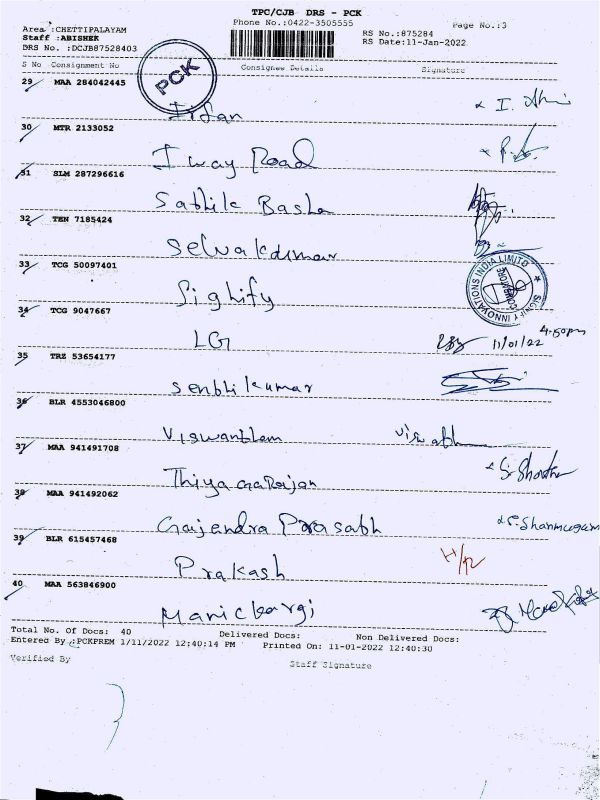 TPC/CJB DRS - PCK
Phone No.:0422-3505555
Page No.:3
Area :CHETTIPALAYAM
Staff :ABISHEK
DRS No. :DCJB87528403
RS No.:875284
RS Date:11-Jan-2022
S No Consignment No Consignee Details Signature
PCK
29 MAA 284042445
Irfan
30 MTR 2133052
I way Road
31 SLM 287296616
Sathik Basha
32 TEN 7185424
Selvakumar
33 TCG 50097401
Sighify
SIGNIFY INNOVATIONS INDIA LIMITED
COIMBATORE
34 TCG 9047667
LG 11/01/22 4:50pm
35 TRZ 53654177
Senthilkumar
36 BLR 4553046800
Viswantham
37 MAA 941491708
Thiyagarajan
38 MAA 941492062
Gajendra Prasath S. Shanmugam
39 BLR 615457468
Prakash
40 MAA 563846900
Total No. Of Docs: 40 Delivered Docs: Non Delivered Docs:
Entered By :PCKPREM 1/11/2022 12:40:14 PM Printed On: 11-01-2022 12:40:30
Verified By Staff Signature